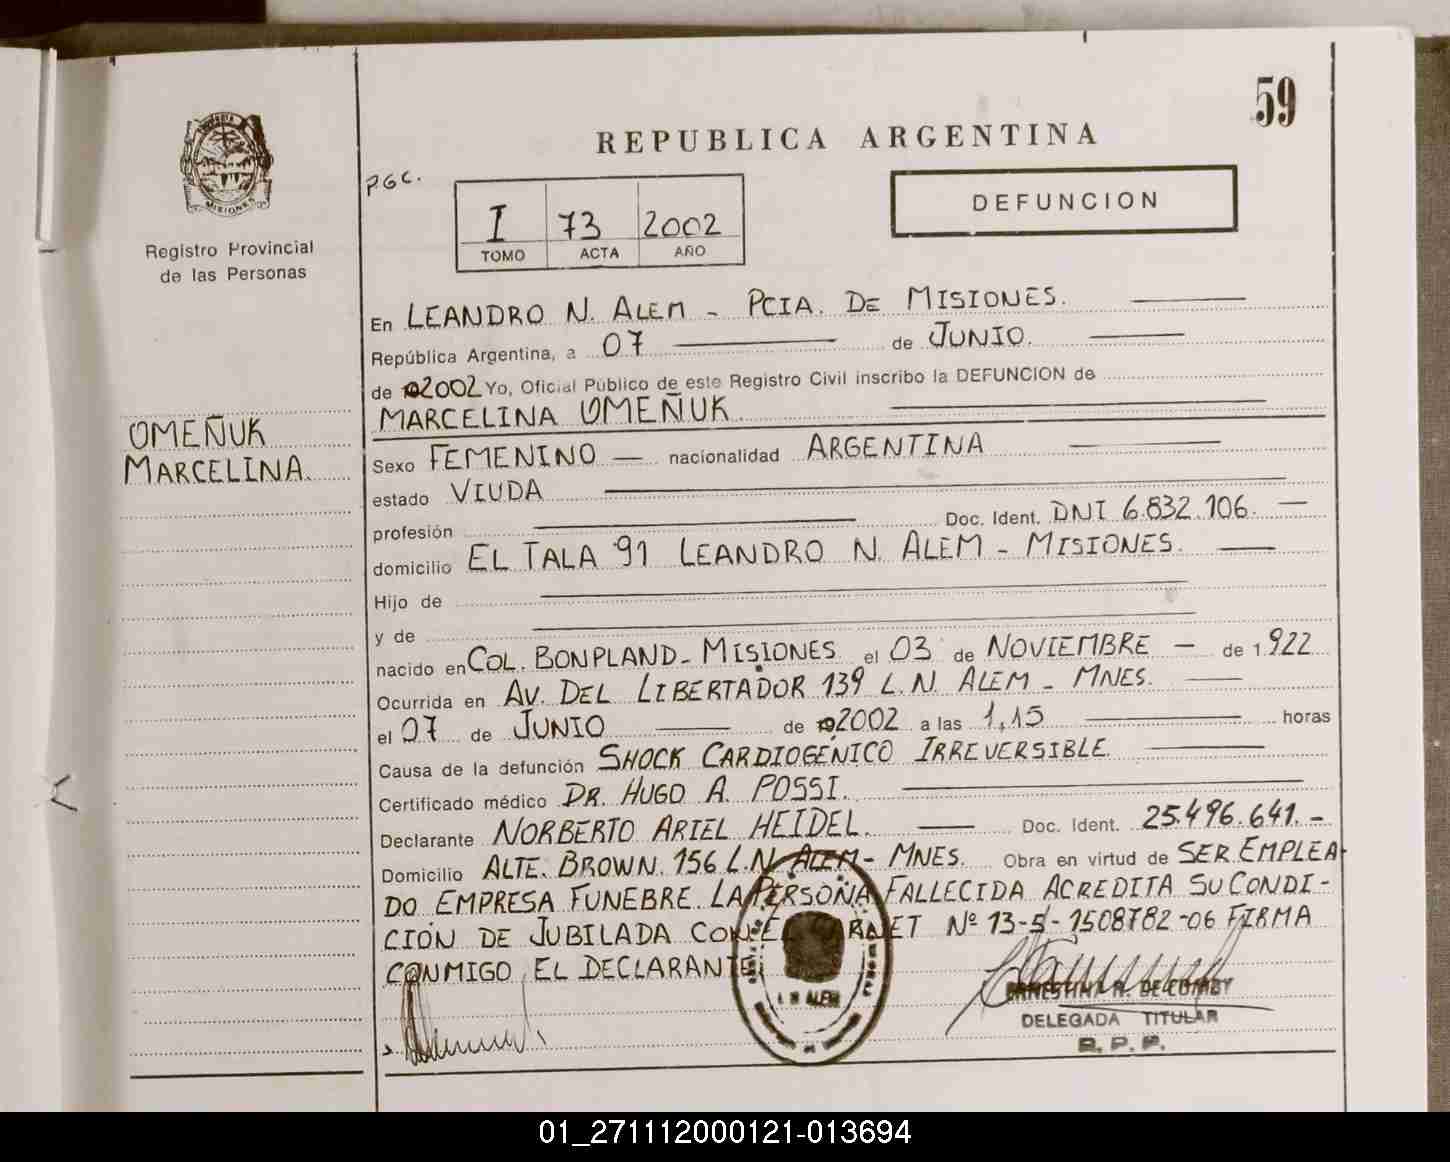 59
REPUBLICA ARGENTINA
MISIONES
Registro Provincial
de las Personas
PGC.
I 73 2002
TOMO ACTA AÑO
DEFUNCION
OMEÑUK
MARCELINA.
En LEANDRO N. ALEM - PCIA. DE MISIONES.
República Argentina, a 07 de JUNIO.
de 2002 Yo, Oficial Público de este Registro Civil inscribo la DEFUNCION de
MARCELINA OMEÑUK
Sexo FEMENINO — nacionalidad ARGENTINA
estado VIUDA
profesión Doc. Ident. DNI 6.832.106. —
domicilio EL TALA 91 LEANDRO N. ALEM - MISIONES. —
Hijo de
y de
nacido en COL. BONPLAND - MISIONES el 03 de NOVIEMBRE - de 1.922
Ocurrida en AV. DEL LIBERTADOR 139 L.N. ALEM - MNES. —
el 07 de JUNIO — de 2002 a las 1,15 — horas
Causa de la defunción SHOCK CARDIOGÉNICO IRREVERSIBLE. —
Certificado médico DR. HUGO A. POSSI. —
Declarante NORBERTO ARIEL HEIDEL. — Doc. Ident. 25.496.641. -
Domicilio ALTE. BROWN. 156 L.N. ALEM - MNES. Obra en virtud de SER. EMPLEA-
DO EMPRESA FUNEBRE. LA PERSONA FALLECIDA ACREDITA SU CONDI-
CIÓN DE JUBILADA CON EL CARNET Nº 13-5-1508782-06 FIRMA
CONMIGO EL DECLARANTE.
L. N. ALEM
DELEGADA TITULAR
R. P. P.
01_271112000121-013694